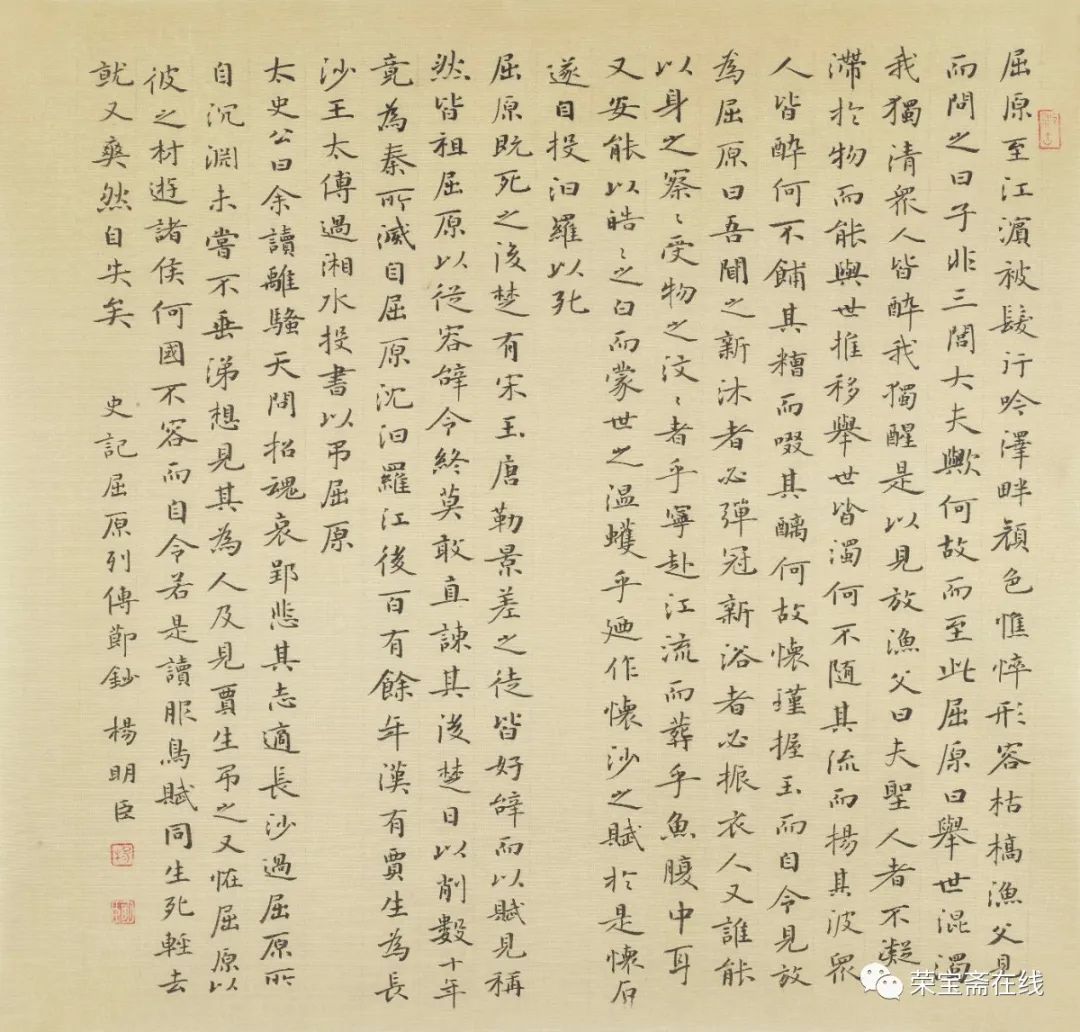 屈原至江濱被髮行吟澤畔顔色憔悴形容枯槁漁父見
而問之曰子非三閭大夫歟何故而至此屈原曰舉世混濁
我獨清衆人皆醉我獨醒是以見放漁父曰夫聖人者不凝
滯於物而能與世推移舉世皆濁何不隨其流而揚其波衆
人皆醉何不餔其糟而啜其醨何故懷瑾握玉而自令見放
為屈原曰吾聞之新沐者必彈冠新浴者必振衣人又誰能
以身之察〻受物之汶〻者乎寧赴江流而葬乎魚腹中耳
又安能以皓〻之白而蒙世之温蠖乎廼作懷沙之賦於是懷石
遂自投汨羅以死
屈原既死之後楚有宋玉唐勒景差之徒皆好辭而以賦見稱
然皆祖屈原以從容辭令終莫敢直諫其後楚日以削數十年
竟為秦所滅自屈原沉汨羅江後百有餘年漢有賈生為長
沙王太傅過湘水投書以弔屈原
太史公曰余讀離騷天問招魂哀郢悲其志適長沙過屈原所
自沉淵未嘗不垂涕想見其為人及見賈生弔之又怪屈原以
彼之材遊諸侯何國不容而自令若是讀服鳥賦同生死輕去
就又爽然自失矣 史記屈原列傳節鈔 楊明臣
荣宝斋在线